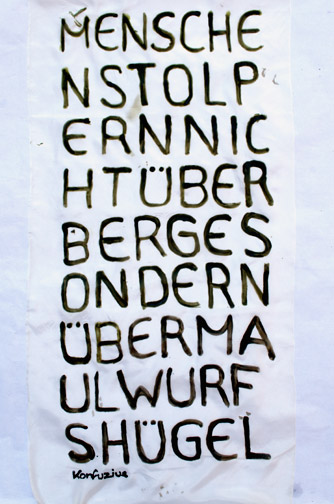 MENSCHE
NSTOLP
ERNNIC
HTÜBER
BERGES
ONDERN
ÜBERMA
ULWURF
SHÜGEL
Konfuzius